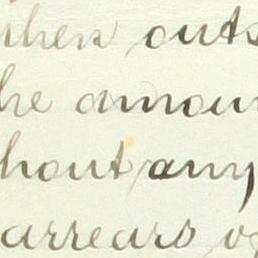 when outs
he amoun
hout any
arrears o